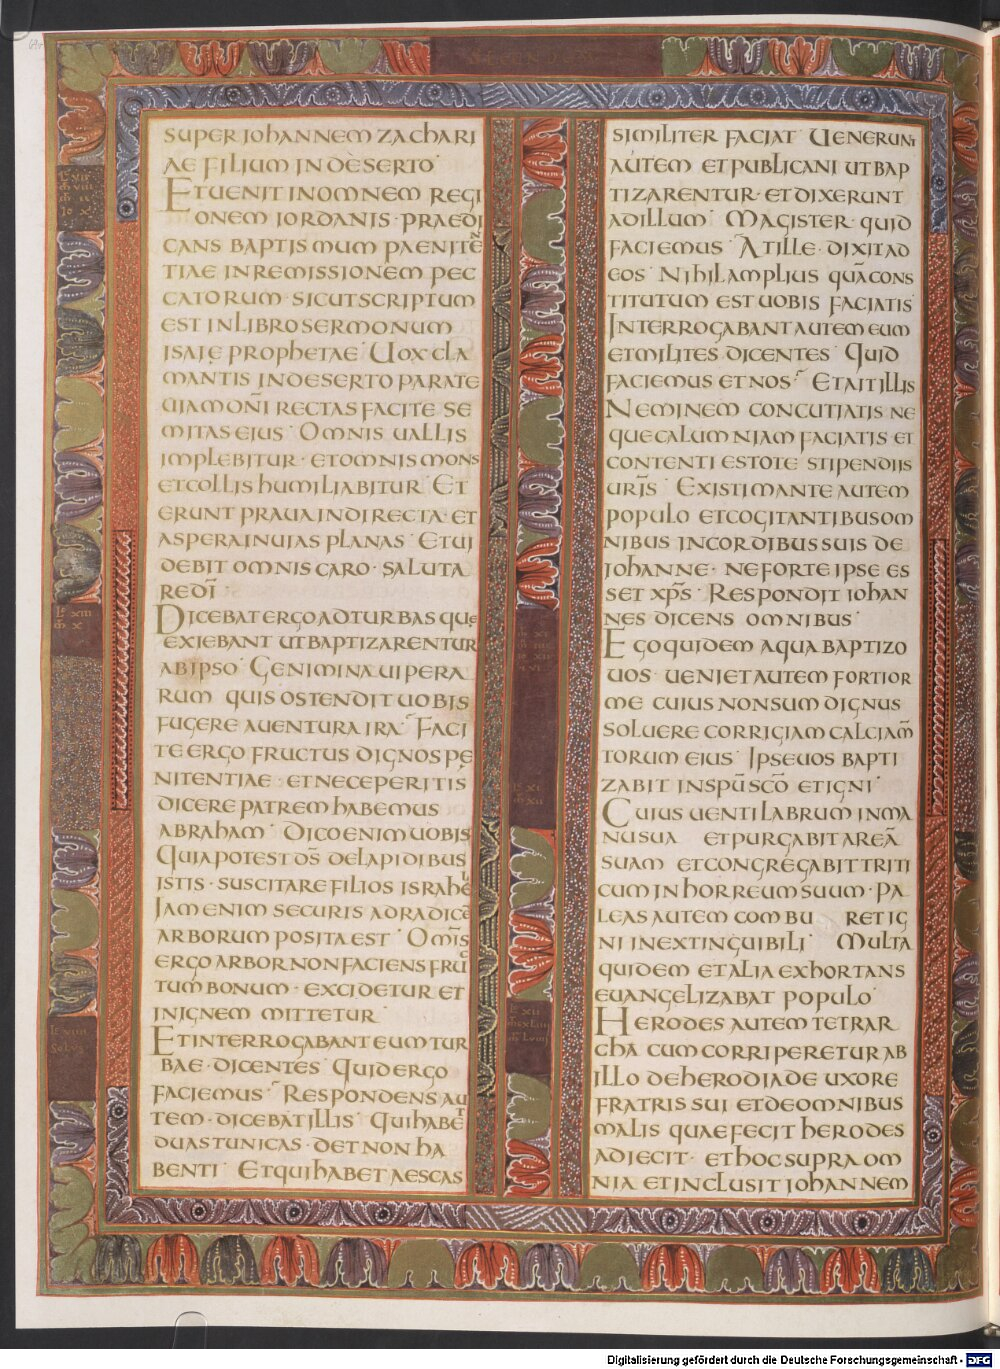 SECUNDU
SUPER IOHANNEM ZACHARI
AE FILIUM IN DESERTO
ET UENIT IN OMNEM REGI
ONEM IORDANIS · PRAEDI
CANS BAPTISMUM PAENITEN
TIAE IN REMISSIONEM PEC
CATORUM · SICUT SCRIPTUM
EST IN LIBRO SERMONUM
ISAIĘ PROPHETAE · UOX CLA
MANTIS IN DESERTO PARATE
UIAM DN̄I RECTAS FACITE SE
MITAS EIUS · OMNIS UALLIS
IMPLEBITUR · ET OMNIS MONS
ET COLLIS HUMILIABITUR · ET
ERUNT PRAUA IN DIRECTA · ET
ASPERA IN UIAS PLANAS · ET UI
DEBIT OMNIS CARO · SALUTA
RE DĪ
DICEBAT ERGO AD TURBAS QUE
EXIEBANT UT BAPTIZARENTUR
AB IPSO · GENIMINA UIPERA
RUM QUIS OSTENDIT UOBIS
FUGERE A UENTURA IRA · FACI
TE ERGO FRUCTUS DIGNOS PĘ
NITENTIAE · ET NE CEPERITIS
DICERE PATREM HABEMUS
ABRAHAM · DICO ENIM UOBIS
QUIA POTEST DS̄ DE LAPIDIBUS
ISTIS · SUSCITARE FILIOS ISRAHEL
IAM ENIM SECURIS AD RADICĒ
ARBORUM POSITA EST · OMĪS
ERGO ARBOR NON FACIENS FRUC
TUM BONUM · EXCIDETUR ET
IN IGNEM MITTETUR
ET INTERROGABANT EUM TUR
BAE · DICENTES · QUID ERGO
FACIEMUS · RESPONDENS AU
TEM · DICEBAT ILLIS · QUI HABET
DUAS TUNICAS · DET NON HA
BENTI · ET QUI HABET AESCAS
SIMILITER FACIAT · UENERUNT
AUTEM ET PUBLICANI UT BAP
TIZARENTUR · ET DIXERUNT
AD ILLUM · MAGISTER · QUID
FACIEMUS · AT ILLE · DIXIT AD
EOS · NIHIL AMPLIUS QUĀ CONS
TITUTUM EST UOBIS FACIATIS
INTERROGABANT AUTEM EUM
ET MILITES · DICENTES · QUID
FACIEMUS ET NOS · ET AIT ILLIS
NEMINEM CONCUTIATIS NE
QUE CALUMNIAM FACIATIS · ET
CONTENTI ESTOTE STIPENDIIS
URĪS · EXISTIMANTE AUTEM
POPULO ET COGITANTIBUS OM
NIBUS IN CORDIBUS SUIS DE
IOHANNE · NE FORTE IPSE ES
SET XP̄S · RESPONDIT IOHAN
NES DICENS OMNIBUS
EGO QUIDEM AQUA BAPTIZO
UOS · UENIET AUTEM FORTIOR
ME CUIUS NON SUM DIGNUS
SOLUERE CORRIGIAM CALCIAM̄
TORUM EIUS · IPSE UOS BAPTI
ZABIT IN SPŪ SC̄O ET IGNI
CUIUS UENTILABRUM IN MA
NU SUA ET PURGABIT AREĀ
SUAM ET CONGREGABIT TRITI
CUM IN HORREUM SUUM · PA
LEAS AUTEM COMBU RET IG
NI INEXTINGUIBILI · MULTA
QUIDEM ET ALIA EXHORTANS
EUANGELIZABAT POPULO
HERODES AUTEM TETRAR
CHA CUM CORRIPERETUR AB
ILLO DE HERODIADE UXORE
FRATRIS SUI ET DE OMNIBUS
MALIS QUAE FECIT HERODES
ADIECIT · ET HOC SUPRA OM
NIA ET INCLUSIT IOHANNEM
Digitalisierung gefördert durch die Deutsche Forschungsgemeinschaft - DFG